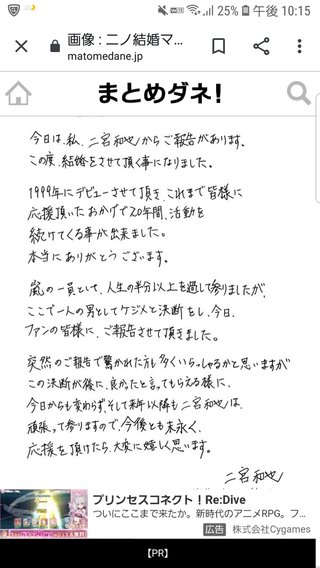 25% 午後 10:15
画像 : 二ノ結婚マ…
matomedane.jp
まとめダネ!
今日は、私、二宮和也からご報告があります。
この度、結婚をさせて頂く事になりました。
1999年にデビューさせて頂き、これまで皆様に
応援頂いたおかげで20年間、活動を
続けてくる事が出来ました。
本当にありがとうございます。
嵐の一員として、人生の半分以上を過して参りましたが、
ここで一人の男としてケジメと決断をし、今日、
ファンの皆様に、ご報告させて頂きました。
突然のご報告で驚かれた方も多くいらっしゃるかと思いますが
この決断が後に、良かったと言ってもらえる様に、
今日からも変わらず、そして来年以降も二宮和也は、
頑張って参りますので、今後とも末永く、
応援を頂けたら、大変に嬉しく思います。
二宮和也
プリンセスコネクト!Re:Dive
ついにここまで来たか。新時代のアニメRPG。フ…
広告 株式会社Cygames
【PR】